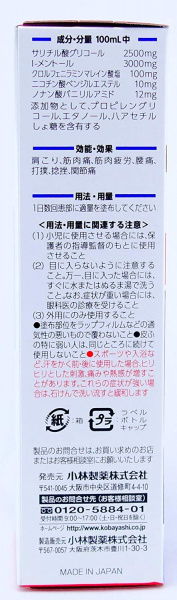 成分・分量 100mL中
サリチル酸グリコール 2500mg
l-メントール 3000mg
クロルフェニラミンマレイン酸塩 100mg
ニコチン酸ベンジルエステル 10mg
ノナン酸バニリルアミド 12mg
添加物として、プロピレングリ
コール、エタノール、ハアセチル
しょ糖を含有する
効能・効果
肩こり、筋肉痛、筋肉疲労、腰痛、
打撲、捻挫、関節痛
用法・用量
1日数回患部に適量を塗布してください
<用法・用量に関連する注意>
(1) 小児に使用させる場合には、保
護者の指導監督のもとに使用
させること
(2) 目に入らないように注意する
こと。万一、目に入った場合には、
すぐに水またはぬるま湯で洗う
こと。なお、症状が重い場合には、
眼科医の診療を受けること
(3) 外用にのみ使用すること
●塗布部位をラップフィルムなどの通
気性の悪いもので覆わないこと ●皮ふ
の特に弱い人は、同じところに続けて
使用しないこと ●スポーツや入浴な
ど、汗をかく前・後に使用した場合、ヒリ
ヒリとした刺激、痛みや熱感が増すこ
とがあります。これらの症状が強い場
合は、石けんで洗い流すと緩和します
紙
:箱
プラ
ラベル
ボトル
キャップ
製品のお問合せは、お買い求めのお店
またはお客様相談室にお願いいたします
発売元 小林製薬株式会社
〒541-0045 大阪市中央区道修町4-4-10
製品のお問合せ先(お客様相談室)
0120-5884-01
受付時間 9:00~17:00(土・日・祝日を除く)
ホームページ www.kobayashi.co.jp
製造販売元 小林製薬株式会社
〒567-0057 大阪府茨木市豊川1-30-3
MADE IN JAPAN